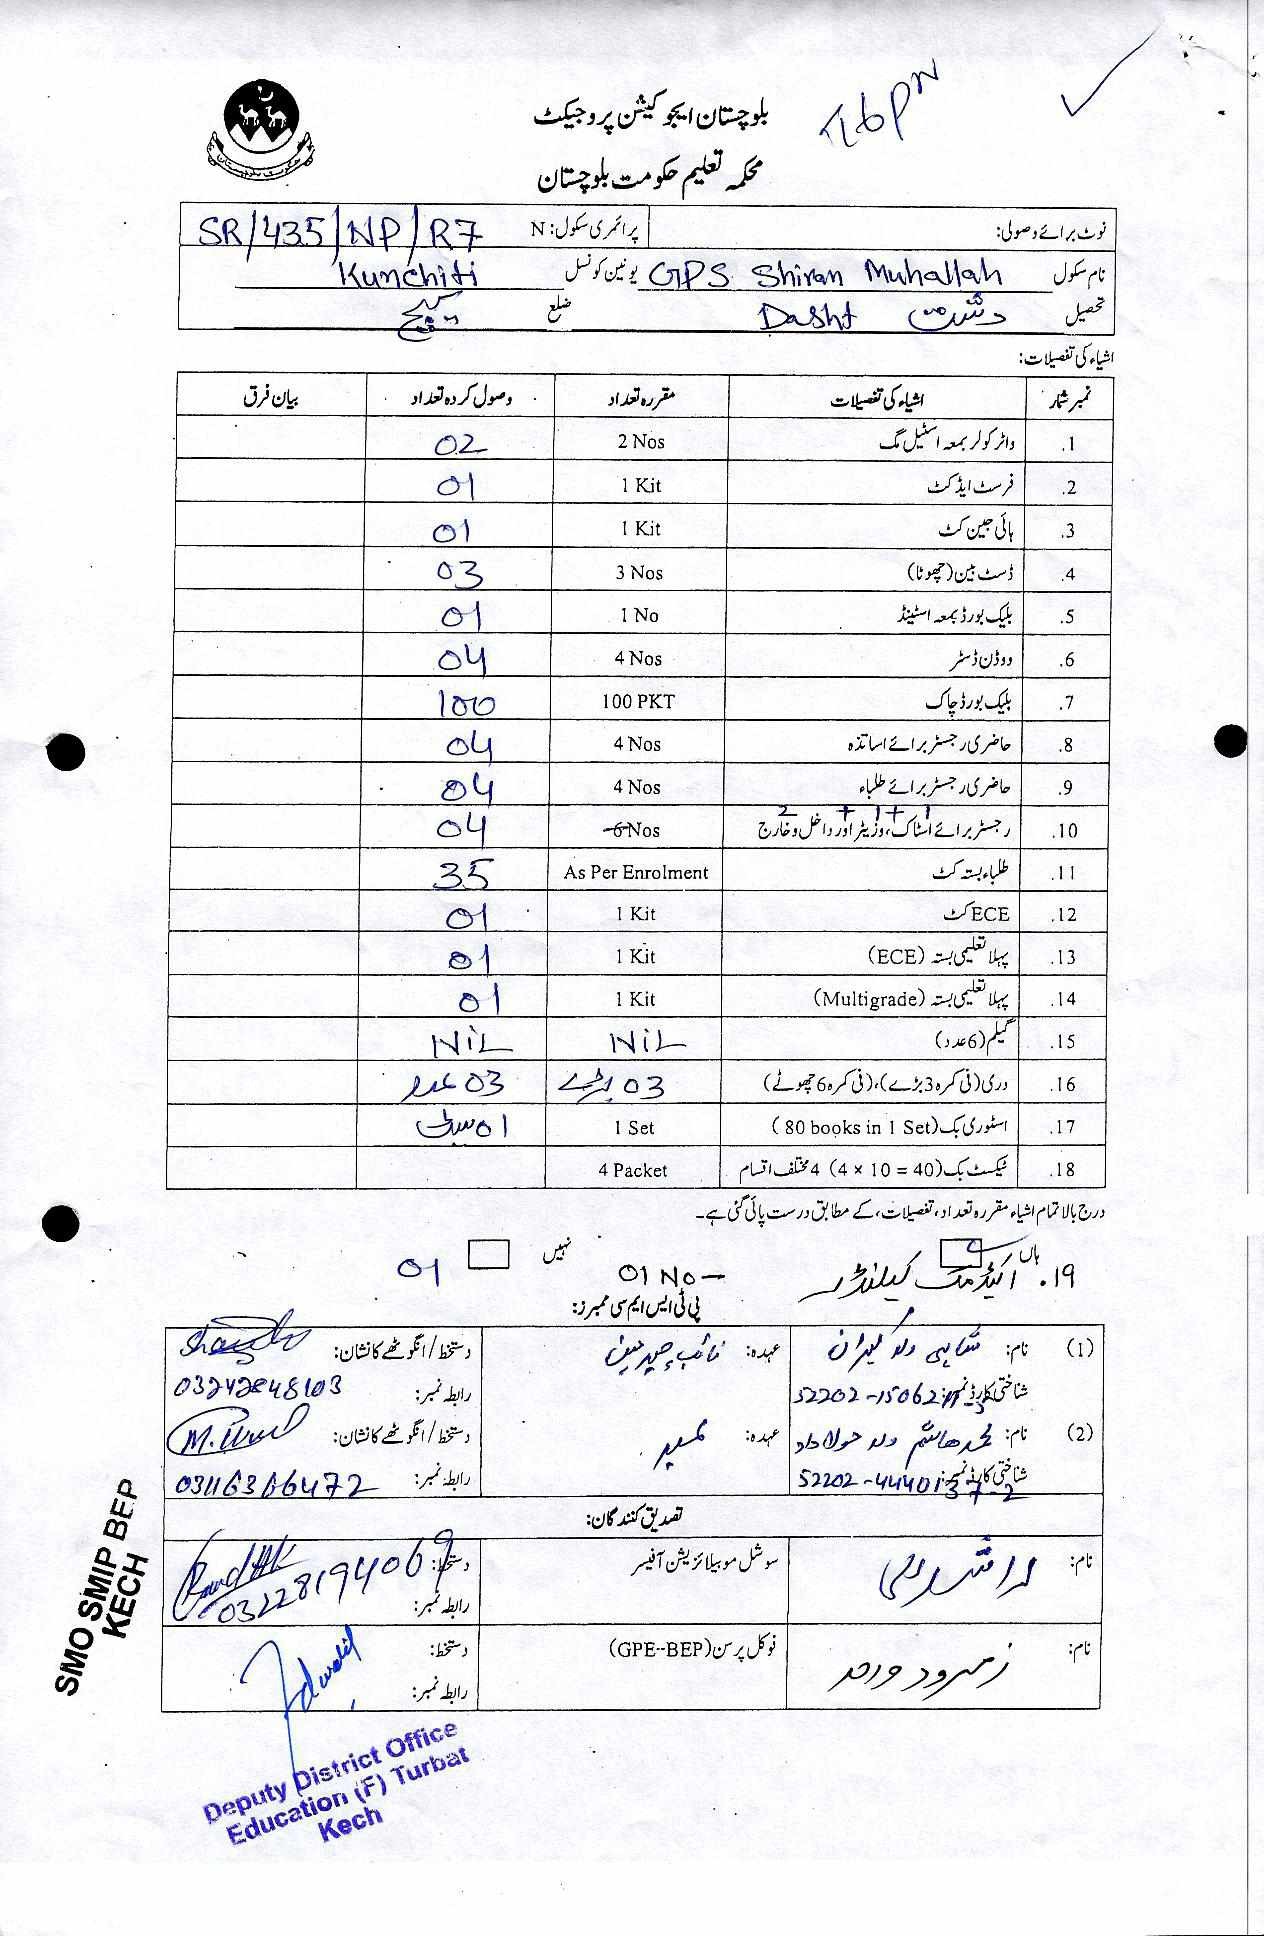 بلوچستان ایجوکیشن پروجیکٹ
محکمہ تعلیم حکومت بلوچستان
نوٹ برائے وصولی: پرائمری سکول: N SR/435/NP/R7
نام سکول GPS Shiran Muhallah یونین کونسل Kunchiti
تحصیل دشت Dasht ضلع کیچ
اشیاء کی تفصیلات:
نمبر شمار اشیاء کی تفصیلات مقررہ تعداد وصول کردہ تعداد بیان فرق
.1 واٹر کولر بمعہ اسٹیل مگ 2 Nos 02
.2 فرسٹ ایڈ کٹ 1 Kit 01
.3 ہائی جین کٹ 1 Kit 01
.4 ڈسٹ بین (چھوٹا) 3 Nos 03
.5 بلیک بورڈ بمعہ اسٹینڈ 1 No 01
.6 ووڈن ڈسٹر 4 Nos 04
.7 بلیک بورڈ چاک 100 PKT 100
.8 حاضری رجسٹر برائے اساتذہ 4 Nos 04
.9 حاضری رجسٹر برائے طلباء 4 Nos 04
2 + 1 + 1
.10 رجسٹر برائے اسٹاک، وزیٹر اور داخل و خارج 6 Nos 04
.11 طلباء بستہ کٹ As Per Enrolment 35
.12 ECE کٹ 1 Kit 01
.13 پہلا تعلیمی بستہ (ECE) 1 Kit 01
.14 پہلا تعلیمی بستہ (Multigrade) 1 Kit 01
.15 گیم (6 عدد) NIL NIL
.16 دری (فی کمرہ 3 بڑے)، (فی کمرہ 6 چھوٹے) 03 بڑے 03 عدد
.17 اسٹوری بک (80 books in 1 Set) 1 Set 01 سیٹ
.18 ٹیکسٹ بک (4 × 10 = 40) 4 مختلف اقسام 4 Packet
درج بالا تمام اشیاء مقررہ تعداد، تفصیلات، کے مطابق درست پائی گئی ہے۔
ہاں نہیں
۱۹. اکیڈمک کیلنڈر 01 No 01
پی ٹی ایس ایم سی ممبرز:
(1) نام: عہدہ: نائب چیئرمین دستخط / انگوٹھے کا نشان:
شناختی کارڈ نمبر: رابطہ نمبر: 03242848103
(2) نام: محمد ہاشم ولد عہدہ: ممبر دستخط / انگوٹھے کا نشان:
شناختی کارڈ نمبر: 52202-4440137-2 رابطہ نمبر: 03116366472
تصدیق کنندگان:
نام: سوشل موبیلائزیشن آفیسر دستخط:
رابطہ نمبر: 03228194069
نام: فوکل پرسن (GPE-BEP) دستخط:
رابطہ نمبر:
SMO SMIP BEP
KECH
Deputy District Office
Education (F) Turbat
Kech